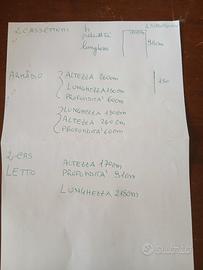 2 CASSETTONI h
profondità
lunghezza
90cm
ARMADIO ALTEZZA 260cm
LUNGHEZZA 150cm
PROFONDITÀ 60cm
150
LUNGHEZZA 130cm
ALTEZZA 260cm
PROFONDITÀ 60cm
ALTEZZA 170cm
LETTO PROFONDITÀ 91cm
LUNGHEZZA 280cm
subito.it